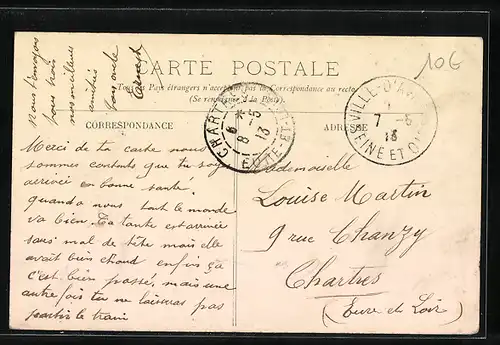 10G
nous t'envoyons
tous trois
nos meilleures
amitiés
ton oncle
CARTE POSTALE
Tous les Pays étrangers n'acceptent pas la Correspondance au recto
(Se renseigner à la Poste).
CORRESPONDANCE
ADRESSE
CHARTRES
6 * 8-5 13
EURE-ET-LOIR
VILLE-D'AVRAY
7-5 13
SEINE ET OISE
Merci de ta carte nous
sommes contents que tu soye
arrivée en bonne santé
quand a nous tout le monde
va bien. Ta tante est arrivée
sans mal de tête mais elle
avait chaud enfin ça
c'est bien passé, mais une
autre fois tu ne laisseras pas
partir le train
Mademoiselle
Louise Martin
9 rue Chanzy
Chartres
(Eure et Loir)